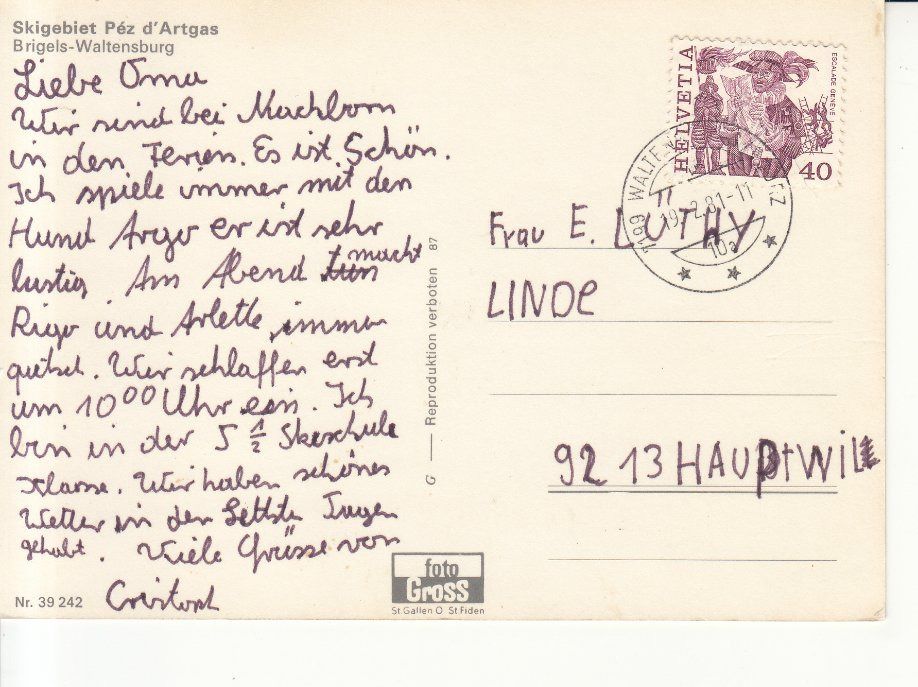 Skigebiet Péz d'Artgas
Brigels-Waltensburg
Liebe Oma
Wir sind bei Machborn
in den Ferien. Es ist Schön.
Ich spiele immer mit den
Hund Argo er ist sehr
lustig. Am Abend tun macht
Rigo und Arlette immer
quetsch. Wir schlaffen erst
um 10⁰⁰ Uhr ein. Ich
bin in der 5 ½ Skischule
Klasse. Wir haben schönes
Wetter in den lettsten Tagen
gehabt. Viele Grüsse von
Cristoph
Nr. 39 242
G — Reproduktion verboten 87
foto
Gross
St.Gallen O St Fiden
HELVETIA
ESCALADE GENÈVE
40
19.-2.81-11
10a
Frau E. LÜTHY
LINDE
9213 HAUPtWIL